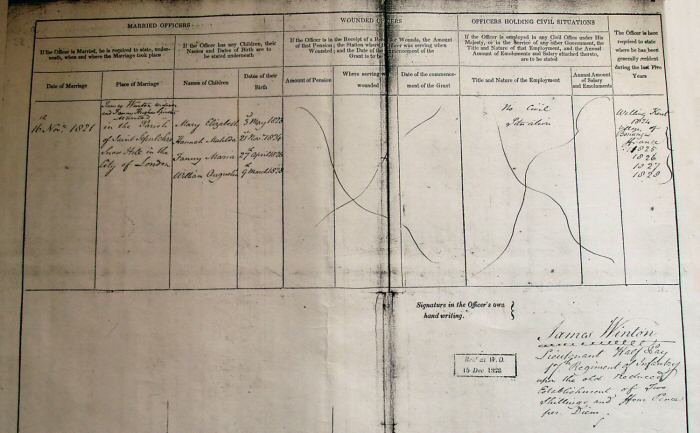 MARRIED OFFICERS
If the Officer is Married, he is required to state, underneath, when and where the Marriage took place
If the Officer has any Children, their Names and Dates of Birth are to be stated underneath
Date of Marriage
Place of Marriage
Names of Children
Dates of their Birth
16th Novr. 1821
James Winton
in the Parish
of Saint Sepulchre
Snow Hill in the
City of London
Mary Elizabeth 3d May 1823
Hannah Matilda 21st Novr. 1824
Fanny Maria 27th April 1826
William Augustus 9th March 1828
WOUNDED OFFICERS
If the Officer is in the Receipt of a Pension for Wounds, the Amount
of that Pension; the Station where the Officer was serving when
Wounded; and the Date of the Commencement of the Grant
is to be
Amount of Pension
Where serving when wounded
Date of the commencement of the Grant
OFFICERS HOLDING CIVIL SITUATIONS
If the Officer is employed in any Civil Office under His
Majesty, or in the Service of any other Government, the
Title and Nature of that Employment, and the Annual
Amount of Emoluments and Salary attached thereto,
are to be stated
Title and Nature of the Employment
Annual Amount of Salary and Emoluments
No Civil
Situation
The Officer is here
required to state
where he has been
generally resident
during the last Five
Years
Welling Kent
1824
of
France
1825
1826
1827
1828
Signature in the Officer's own
hand writing.
James Winton
Lieutenant Half Pay
Regiment of Infantry
upon the old reduced
Establishment of Two
Shillings and Four Pence
per Diem
Recd at W.O.
15 Dec. 1828